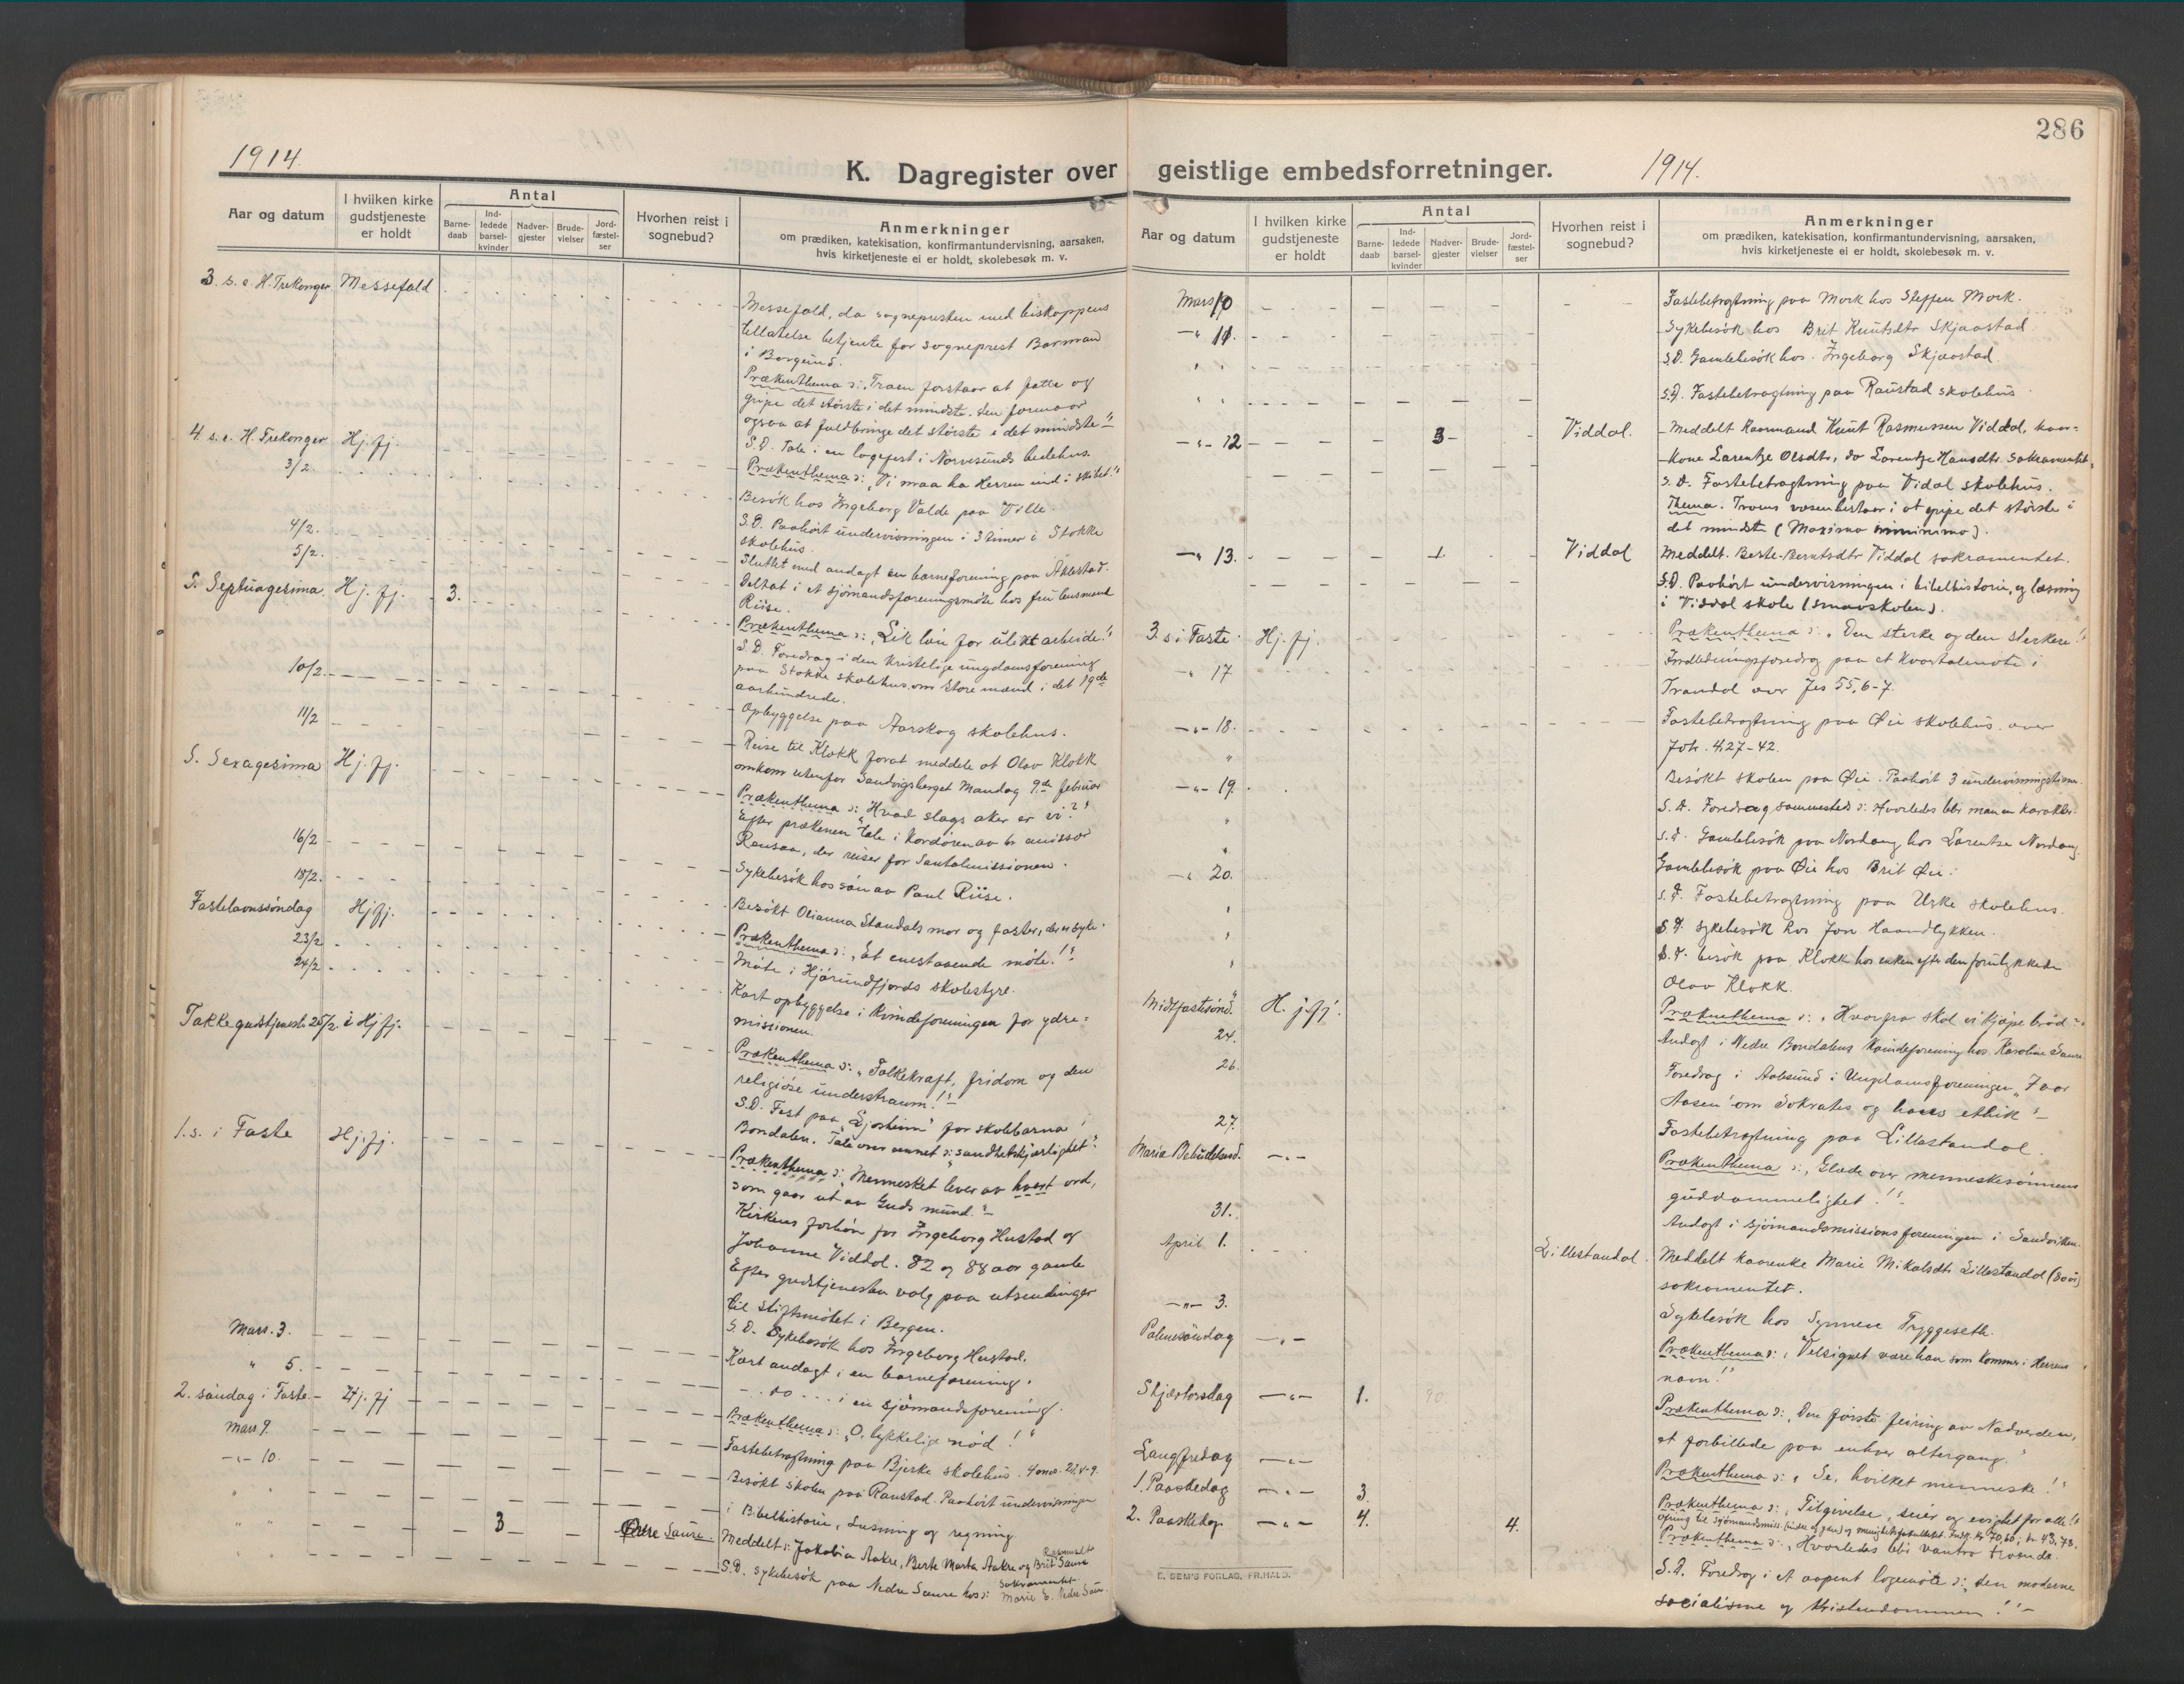 286
1914.
K. Dagregister over
Aar og datum
I hvilken kirke gudstjeneste er holdt
Antal
Barne-daab
Ind-ledede barsel-kvinder
Nadver-gjester
Brude-vielser
Jord-fæstel-ser
Hvorhen reist i sognebud?
Anmerkninger
om prædiken, katekisation, konfirmantundervisning, aarsaken,
hvis kirketjeneste ei er holdt, skolebesøk m. v.
3. s. e. H. Trekonger Messefald
Messefald, da sognepresten med biskoppens
tillatelse betjente for sogneprest Barman
i Borgund.
Prækenthema ɔ: Troen forstaar at fatte og
gripe det største i det mindste. den formaar
ogsaa at fuldbringe det største i det mindste"
4 s. e. H. Trekonger Hj. fj.
S. D. Tale i en logefest i Nørvesunds bedehus.
Prækenthema ɔ: "Vi maa ha Herren ind i skibet!"
3/2
Besøk hos Ingeborg Valde paa Ville
S. D. Paahørt undervisningen i 3 timer i Stokke
skolehus.
4/2. Sluttet med andagt en barneforening paa Åklestad.
5/2. Deltat i et sjømandsforeningsmøte hos fru lensmand
Riise.
S. Septuagesima. Hj. fj. 3.
Prækenthema ɔ: "Lik løn for ulikt arbeide!"
S. D. Foredrag i den kristelige ungdomsforening
paa Stokke skolehus om store mænd i det 19de
aarhundrede.
10/2. Opbyggelse paa Aarskog skolehus.
11/2 Reise til Klokk forat meddele at Olav Klokk
omkom utenfor Sandvigsberget Mandag 9de februar
S. Sexagesima Hj. fj.
Prækenthema ɔ: "Hvad slags aker er vi?"
Efter prækenen tale i kordøren av emissær
Ransaa, der reiser for Santalmissionen.
16/2 Sykebesøk hos søn av Paul Riise.
18/2. Besøkt Olianna Standals mor og faster, der er syke.
Fastelavnssøndag Hj. fj.
Prækenthema ɔ: "Et enestaaende møte!"
23/2 Møte i Hjørundfjords skolestyre.
24/2 Kort opbyggelse i Kvindeforeningen for ydre=
missionen.
Takkegudstjeneste 25/2. i Hj. fj.
Prækenthema ɔ: "Folkekraft, fridom og den
religiøse understraum!"
S. D. Fest paa "Ljosheim" for skolebarna i
Bondalen. Tale over emnet ɔ: "sandhetskjærlighet".
1. s. i Faste Hj. fj.
Prækenthema ɔ: "Mennesket lever av hvert ord,
som gaar ut av Guds mund."
Kirkens forbøn for Ingeborg Hustad og
Johanne Viddal. 82 og 88 aar gamle
Efter gudstjenesten valg paa utsendinger
til stiftsmøtet i Bergen.
S. D. Sykebesøk hos Ingeborg Hustad.
Mars. 3. Kort andagt i en barneforening.
" 5. - .. do - .. i en sjømandsforening.
2. søndag i Faste. Hj. fj
Prækenthema ɔ: "O. lykkelige nød!"
Mars 9. Fastebetragtning paa Bjerke skolehus. 4 mos. 21. 4-9.
-"- 10. Besøkt skolen paa Raustad. Paahørt undervisningen
i Bibelhistorie, Læsning og regning
3 Øvre Saure. Meddelt ɔ: Jakobia Aakre, Berte Marta Aakre og Brit Rasmusdt Saure
Sakramentet
S. D. sykebesøk paa Nedre Saure hos ɔ: Marie E. Nedre Saure
geistlige embedsforretninger.
1914.
Aar og datum
I hvilken kirke gudstjeneste er holdt
Antal
Barne-daab
Ind-ledede barsel-kvinder
Nadver-gjester
Brude-vielser
Jord-fæstel-ser
Hvorhen reist i sognebud?
Anmerkninger
om prædiken, katekisation, konfirmantundervisning, aarsaken,
hvis kirketjeneste ei er holdt, skolebesøk m. v.
Mars 10 Fastebetragtning paa Mork hos Steffen Mork.
-"- 11. Sykebesøk hos Brit Knutsdtr Skjaastad
S. D. Gamlebesøk hos Ingeborg Skjaastad.
S. D. Fastebetragtning paa Raustad skolehus
-"- 12 3 Viddal. Meddelt Kaarmand Knut Rasmussen Viddal, kaar=
kone Larentze Olsdtr, do Larentze Hansdtr. Sakramentet.
S. D. Fastebetragtning paa Vidal skolehus.
Thema. Troens væsen bestaar i at gripe det største i
det mindste (Maxima in minimo).
-"- 13. 1. Viddal Meddelt. Berte Berntsdtr Viddal sakramentet.
S. D. Paahørt undervisningen i bibelhistorie, og læsning
i Viddal skole (smaaskolen).
3. s i Faste. Hj. fj.
Prækenthema ɔ: "Den sterke og den sterkere!"
-"- 17 Indledningsforedrag paa et kvartalmøte i
Trandal over Jes 55, 6-7.
-"- 18. Fastebetragtning paa Øie skolehus over
Joh. 4, 27-42.
-"- 19. Besøkt skolen paa Øie. Paahørt 3 undervisningstimer.
S. D. Foredrag sammesteds ɔ: Hvorledes blir man en karakter.
S. d. Gamlebesøk paa Nordang hos Larentse Nordang.
-"- 20. Gamlebesøk paa Øie hos Brit Øie.
S. D. Fastebetragtning paa Urke skolehus.
S. D. sykebesøk hos Jon Haandlykken.
S. D. besøk paa Klokk hos enken efter den forulykkede
Olav Klokk.
Midtfastesønd. H. j. fj.
Prækenthema ɔ: "Hvorfra skal vi kjøpe brød?"
24. Andagt i Nedre Bondalens Kvindeforening hos Karoline Saure
26. Foredrag i Aalesund i Ungdomsforeningen "Ivar
Aasen" om Sokrates og hans ethik"
27. Fastebetragtning paa Lillestandal.
Mariæ Bebudelsesd. -"-
Prækenthema ɔ: "Glæde over menneskesønnens
guddommelighet!"
31. Andagt i sjømandsmissionsforeningen i Sandviken.
April 1. Lillestandal. Meddelt kaarenke Marie Mikalsdtr Lillestandal (80 år)
sakramentet.
-"- 3. Sykebesøk hos Synnøve Tryggeseth.
Palmesøndag -"-
Prækenthema ɔ: "Velsignet være han som kommer i Herrens
navn!"
Skjærtorsdag -"- 1.
Prækenthema ɔ: "Den første feiring av Nadverden,
et forbillede paa enhver altergang."
Langfredag -"-
Prækenthema ɔ: "Se, hvilket menneske!"
1. Paaskedag -"- 3.
Prækenthema ɔ: "Tilgivelse, seier og evighet for alle!"
2. Paaskedag -"- 4. 4.
Prækenthema ɔ: "Hvorledes blir vantro troende.
S. D. Foredrag i et aapent logemøte ɔ: "den moderne
socialisme og kristendommen!"
E. SEM'S FORLAG, FR.HALD.